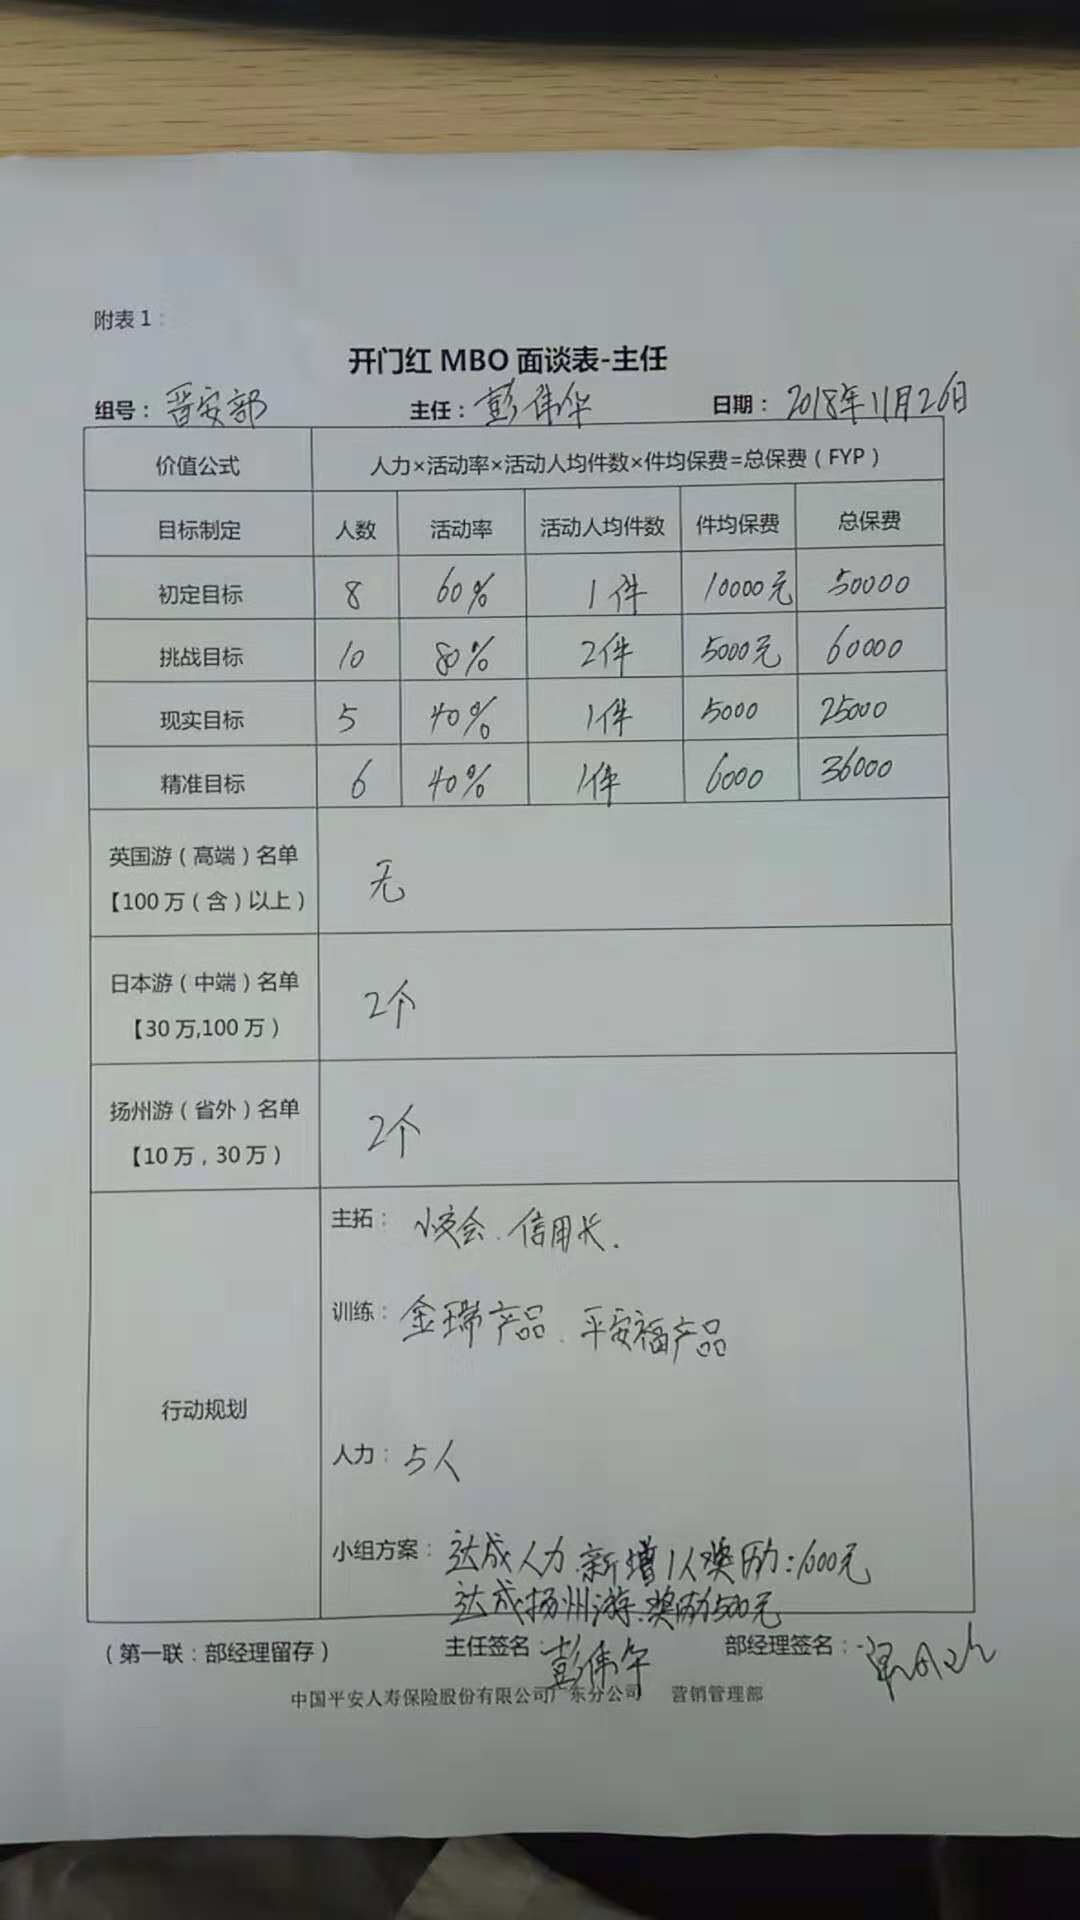 附表1：
开门红 MBO 面谈表-主任
组号：晋安部 主任：彭伟华 日期：2018年11月26日
价值公式 人力×活动率×活动人均件数×件均保费=总保费（FYP）
目标制定 人数 活动率 活动人均件数 件均保费 总保费
初定目标 8 60% 1件 10000元 50000
挑战目标 10 80% 2件 5000元 60000
现实目标 5 40% 1件 5000 25000
精准目标 6 40% 1件 6000 36000
英国游（高端）名单
【100万（含）以上） 无
日本游（中端）名单
【30万,100万） 2个
扬州游（省外）名单
【10万，30万） 2个
行动规划
主拓：小交会、信用卡.
训练：金瑞产品、平安福产品
人力：5人
小组方案：达成人力.新增1人奖励：600元
达成扬州游.奖励500元
（第一联：部经理留存） 主任签名：彭伟华 部经理签名：
中国平安人寿保险股份有限公司广东分公司 营销管理部